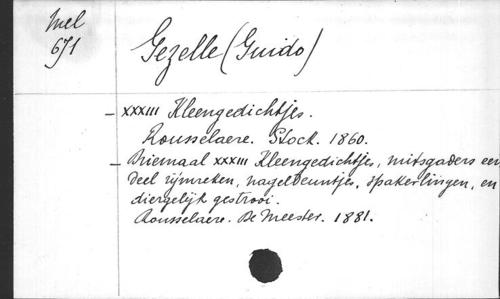 Mel
671
Gezelle (Guido)
- XXXIII Kleengedichtjes.
Rousselaere. Stock. 1860.
- Driemaal XXXIII Kleengedichtjes, mitsgaders een
deel rijmreken, nageldeuntjes, spakerlingen, en
diergelijk gestrooi.
Rousselaere. De Meester. 1881.